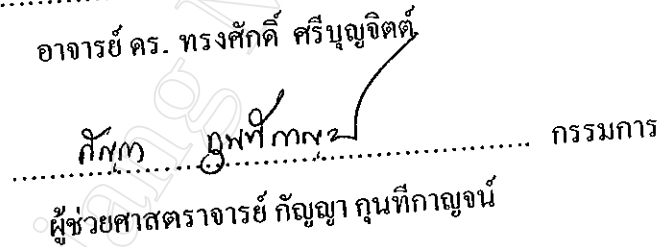 อาจารย์ ดร. ทรงศักดิ์ ศรีบุญจิตต์
กัญญา กุนทีกาญจน์
กรรมการ
ผู้ช่วยศาสตราจารย์ กัญญา กุนทีกาญจน์